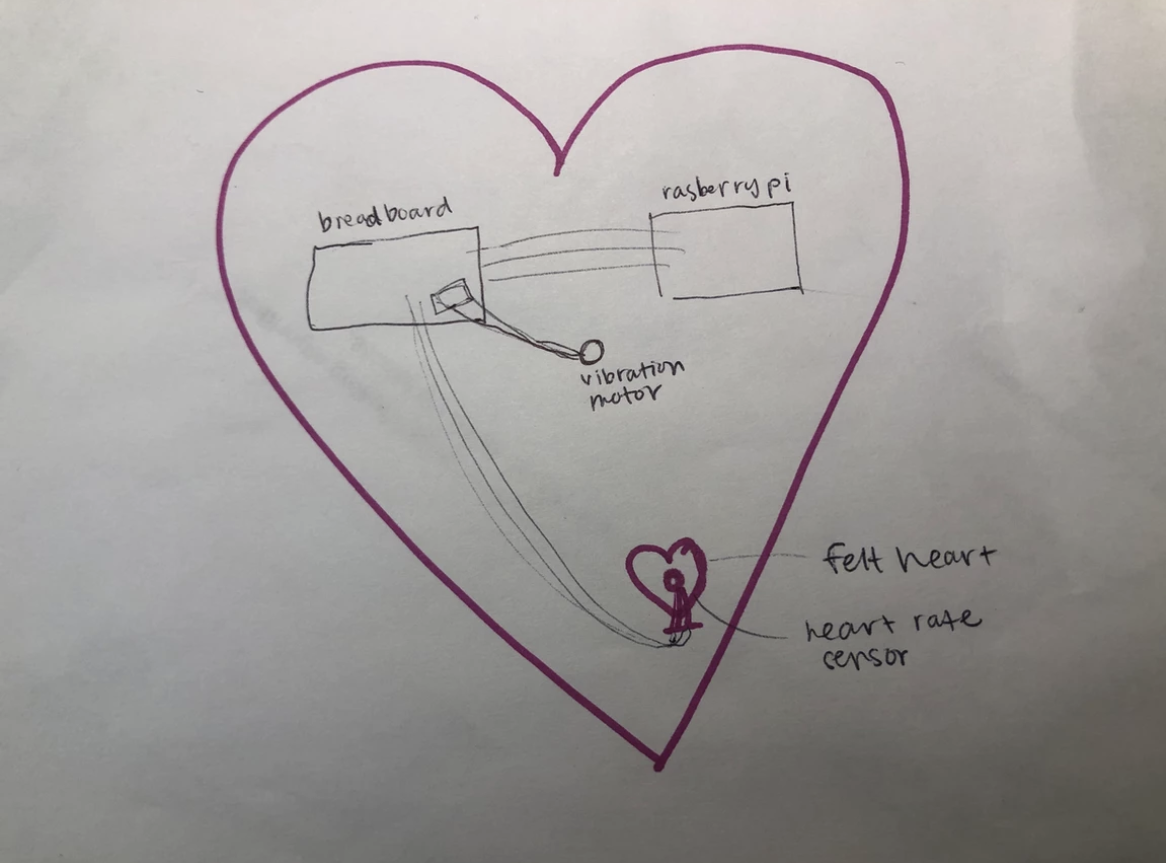 breadboard
rasberry pi
vibration
motor
felt heart
heart rate
censor